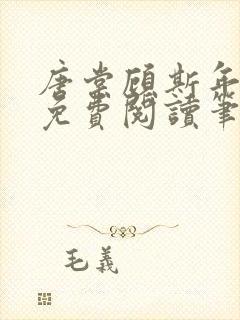 唐棠顧斯年
免費閱讀筆
毛義